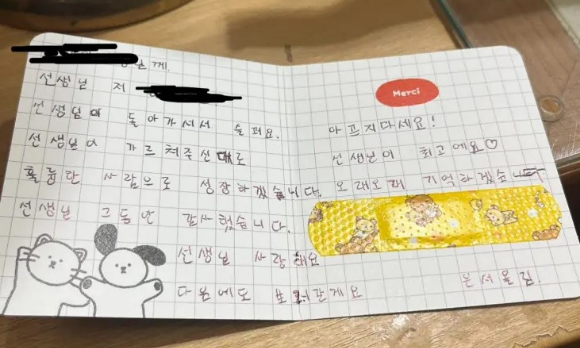 님께.
선생님 저
선생님이 돌아가셔서 슬퍼요.
선생님이 가르쳐주신대로
훌륭한 사람으로 성장하겠습니다.
선생님 그동안 감사했습니다.
선생님 사랑해요
다음에도 보러갈게요
Merci
아프지마세요!
선생님이 최고에요♡
오래오래 기억하겠습니다
올림